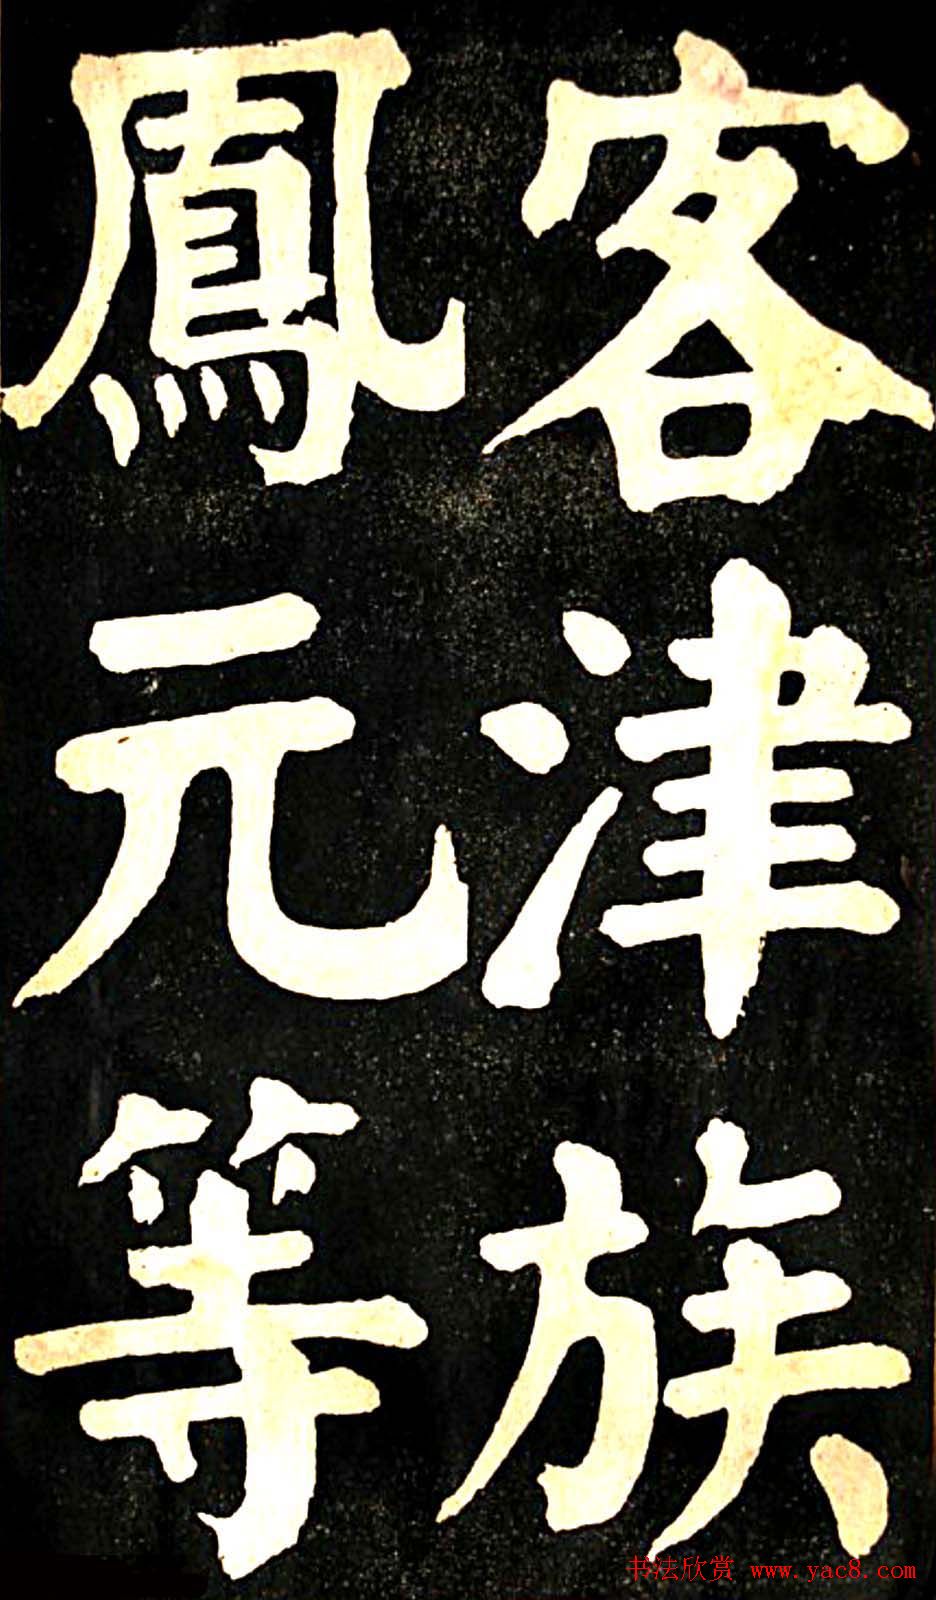 客津族
鳳元等
书法欣赏 www.yac8.com